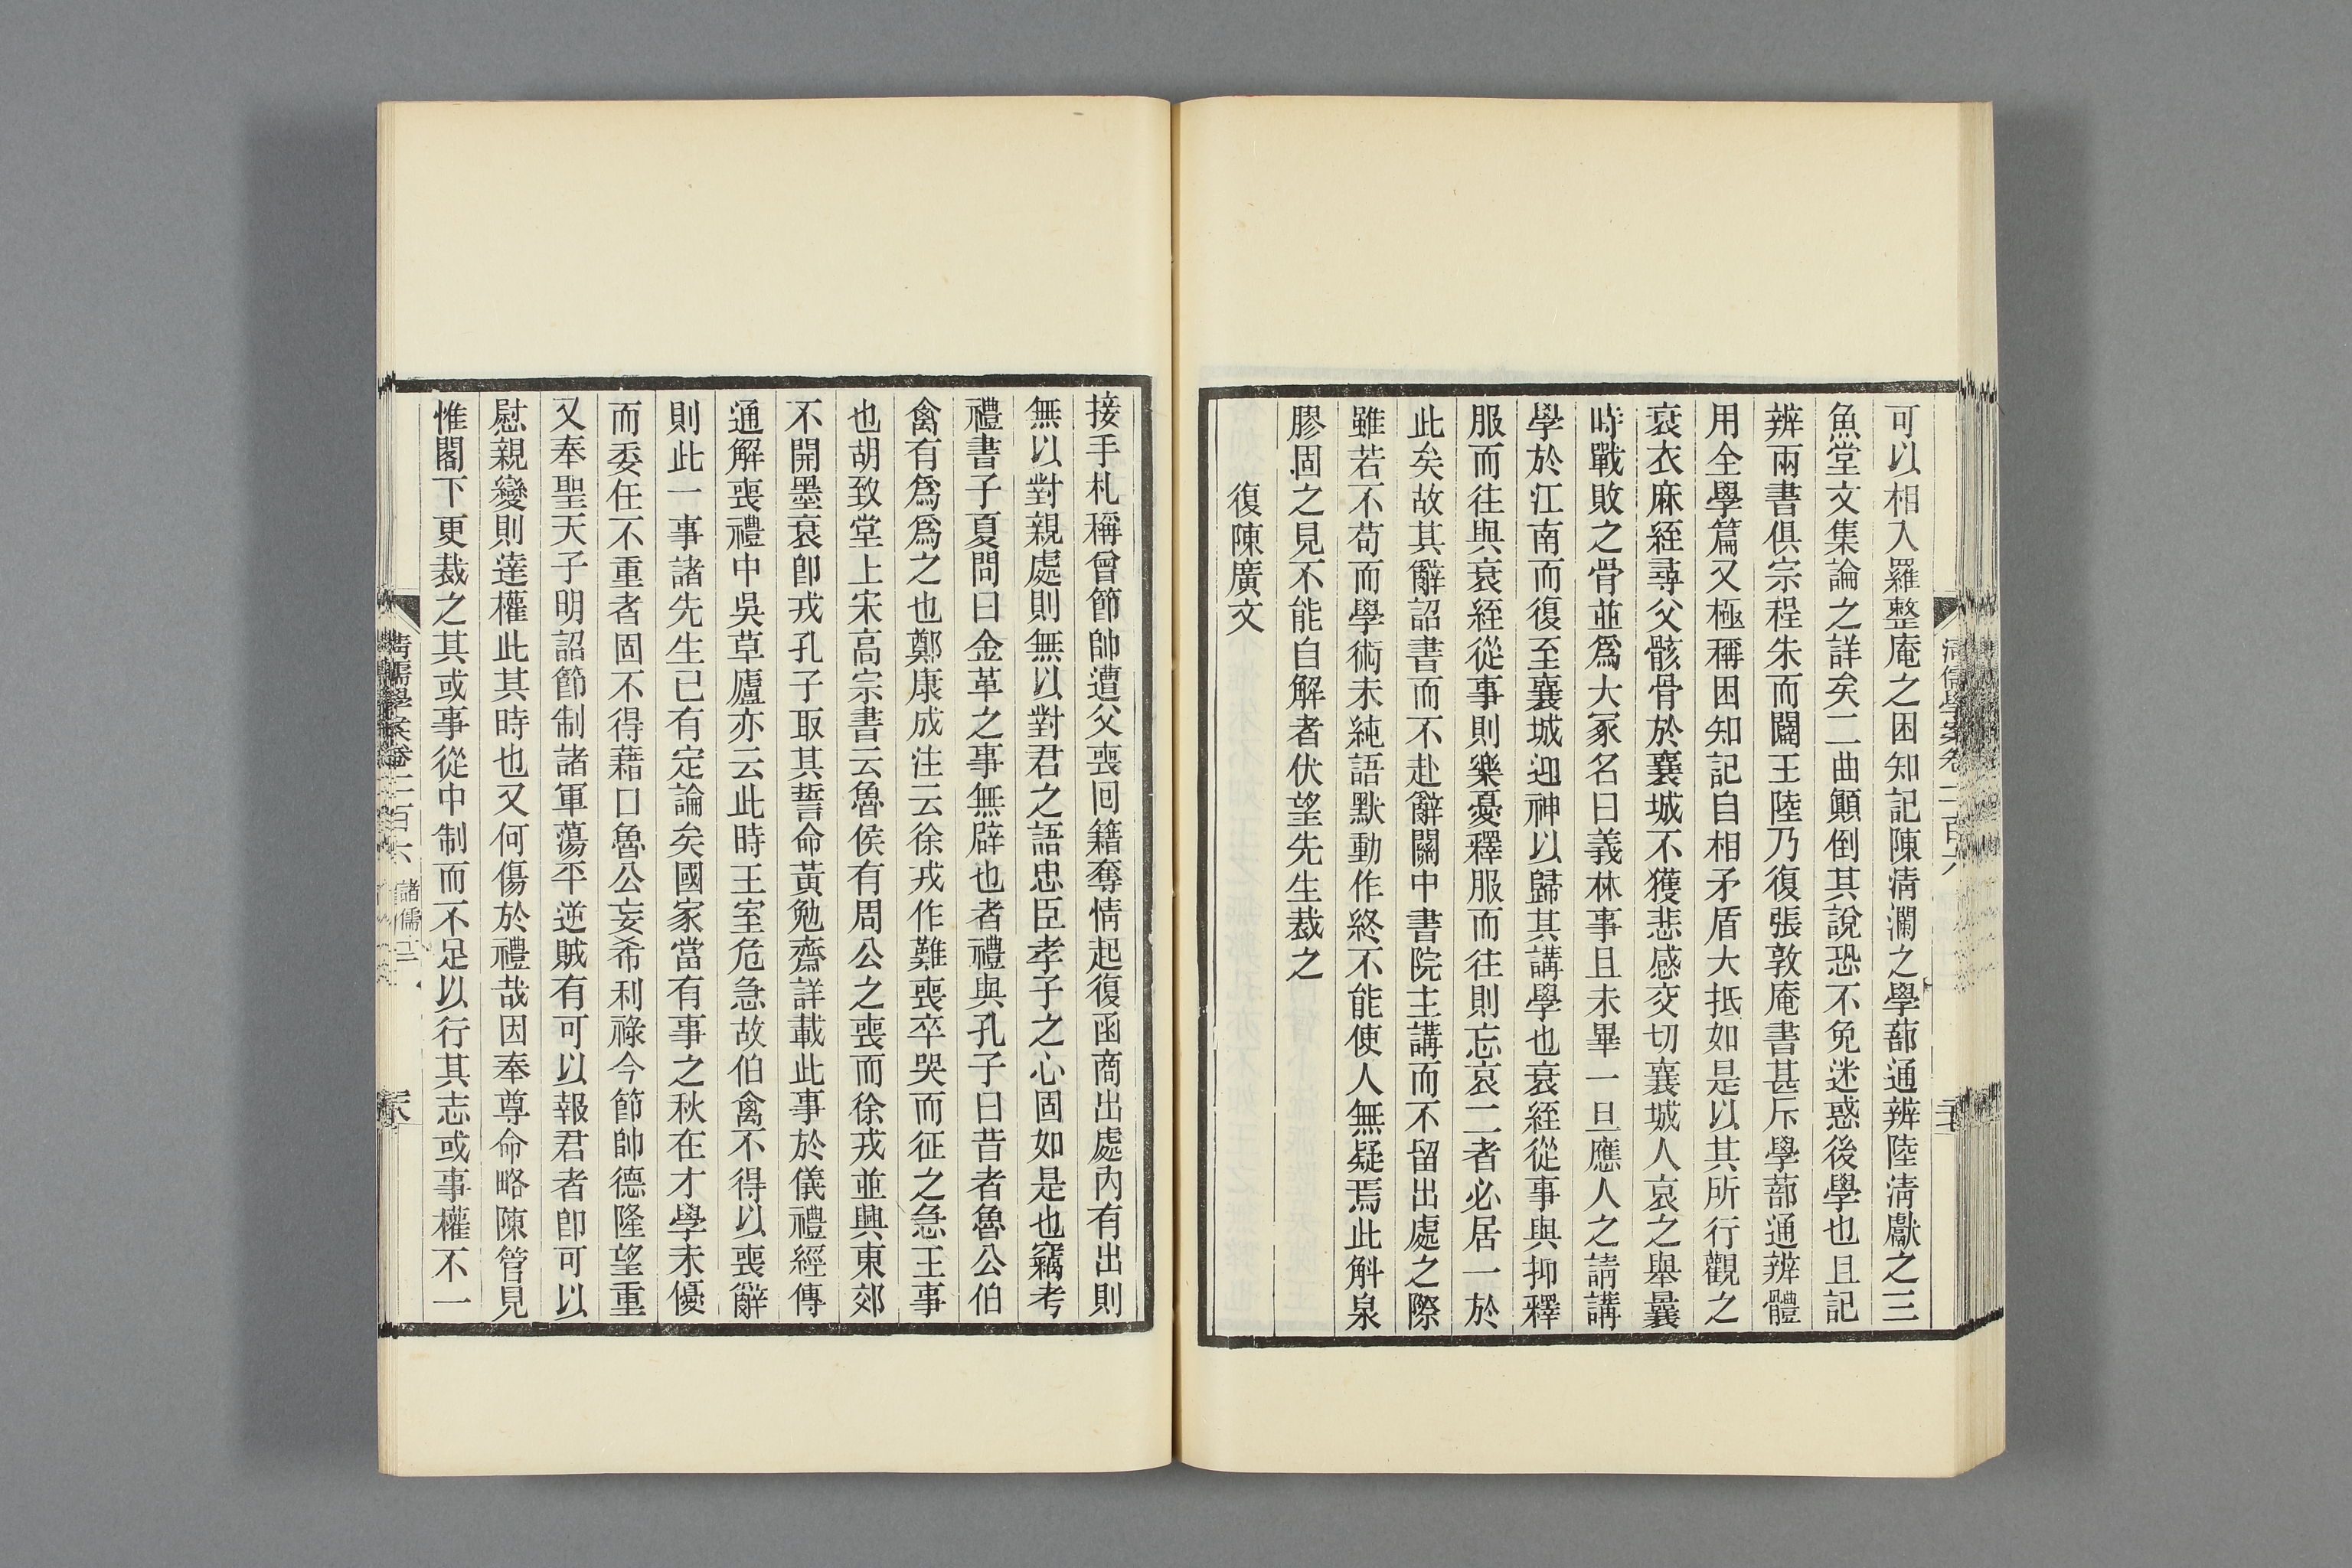 可以相入羅整庵之困知記陳淸瀾之學蔀通辨陸淸獻之三
魚堂文集論之詳矣二曲顚倒其說恐不免迷惑後學也且記
辨兩書俱宗程朱而闢王陸乃復張敦庵書甚斥學蔀通辨體
用全學篇又極稱困知記自相矛盾大抵如是以其所行觀之
衰衣麻絰尋父骸骨於襄城不獲悲感交切襄城人哀之舉曩
時戰敗之骨並爲大冢名曰義林事且未畢一旦應人之請講
學於江南而復至襄城迎神以歸其講學也衰絰從事與抑釋
服而往與衰絰從事則樂憂釋服而往則忘哀二者必居一於
此矣故其辭詔書而不赴辭關中書院主講而不留出處之際
雖若不苟而學術未純語默動作終不能使人無疑焉此斛泉
膠固之見不能自解者伏望先生裁之
復陳廣文
接手札稱曾節帥遭父喪回籍奪情起復函商出處內有出則
無以對親處則無以對君之語忠臣孝子之心固如是也竊考
禮書子夏問曰金革之事無辟也者禮與孔子曰昔者魯公伯
禽有爲爲之也鄭康成注云徐戎作難喪卒哭而征之急王事
也胡致堂上宋高宗書云魯侯有周公之喪而徐戎並興東郊
不開墨衰卽戎孔子取其誓命黃勉齋詳載此事於儀禮經傳
通解喪禮中吳草廬亦云此時王室危急故伯禽不得以喪辭
則此一事諸先生已有定論矣國家當有事之秋在才學未優
而委任不重者固不得藉口魯公妄希利祿今節帥德隆望重
又奉聖天子明詔節制諸軍蕩平逆賊有可以報君者卽可以
慰親變則達權此其時也又何傷於禮哉因奉尊命略陳管見
惟閣下更裁之其或事從中制而不足以行其志或事權不一
淸儒學案卷二百六 諸儒三